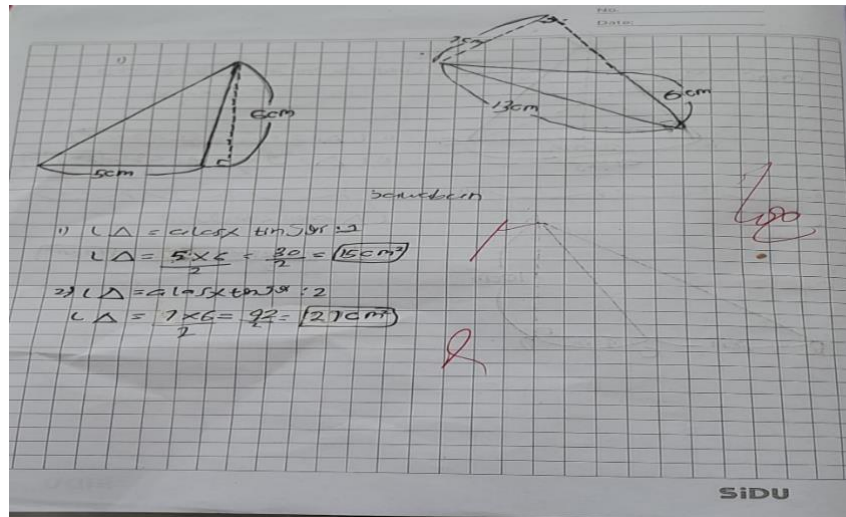 No.
Date:
1)
7cm
6cm
6cm
13cm
5cm
1) L △ = alas x tinggi : 2
L △ = 5 x 6 / 2 = 30 / 2 = 15 cm²
2) L △ = alas x tinggi : 2
L △ = 7 x 6 / 2 = 42 / 2 = 21 cm²
100
SiDU